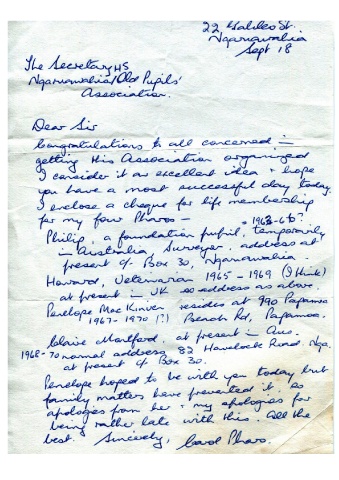 22 Galileo St.
Ngaruawahia
Sept 18
The Secretary HS
Ngaruawahia Old Pupils'
Association.
Dear Sir
Congratulations to all concerned in
getting this Association organized
I consider it an excellent idea & hope
you have a most successful day today.
I enclose a cheque for life membership
for my four Pharos -
1963-66?
Philip, a foundation pupil, temporarily
in Australia Surveyor. address at
present c/- Box 30, Ngaruawahia.
Howard, Veterinarian 1965 - 1969 (I think)
at present in UK so address as above.
Penelope MacKinven resides at 990 Papamoa
1967-1970 (?) Beach Rd, Papamoa.
Claire Montford, at present in Aus.
1968-70 normal address 82 Havelock Road. Nga.
at present c/- Box 30.
Penelope hoped to be with you today but
family matters have prevented it, so
apologies from her & my apologies for
being rather late with this. All the
best. Sincerely, Carol Pharo.